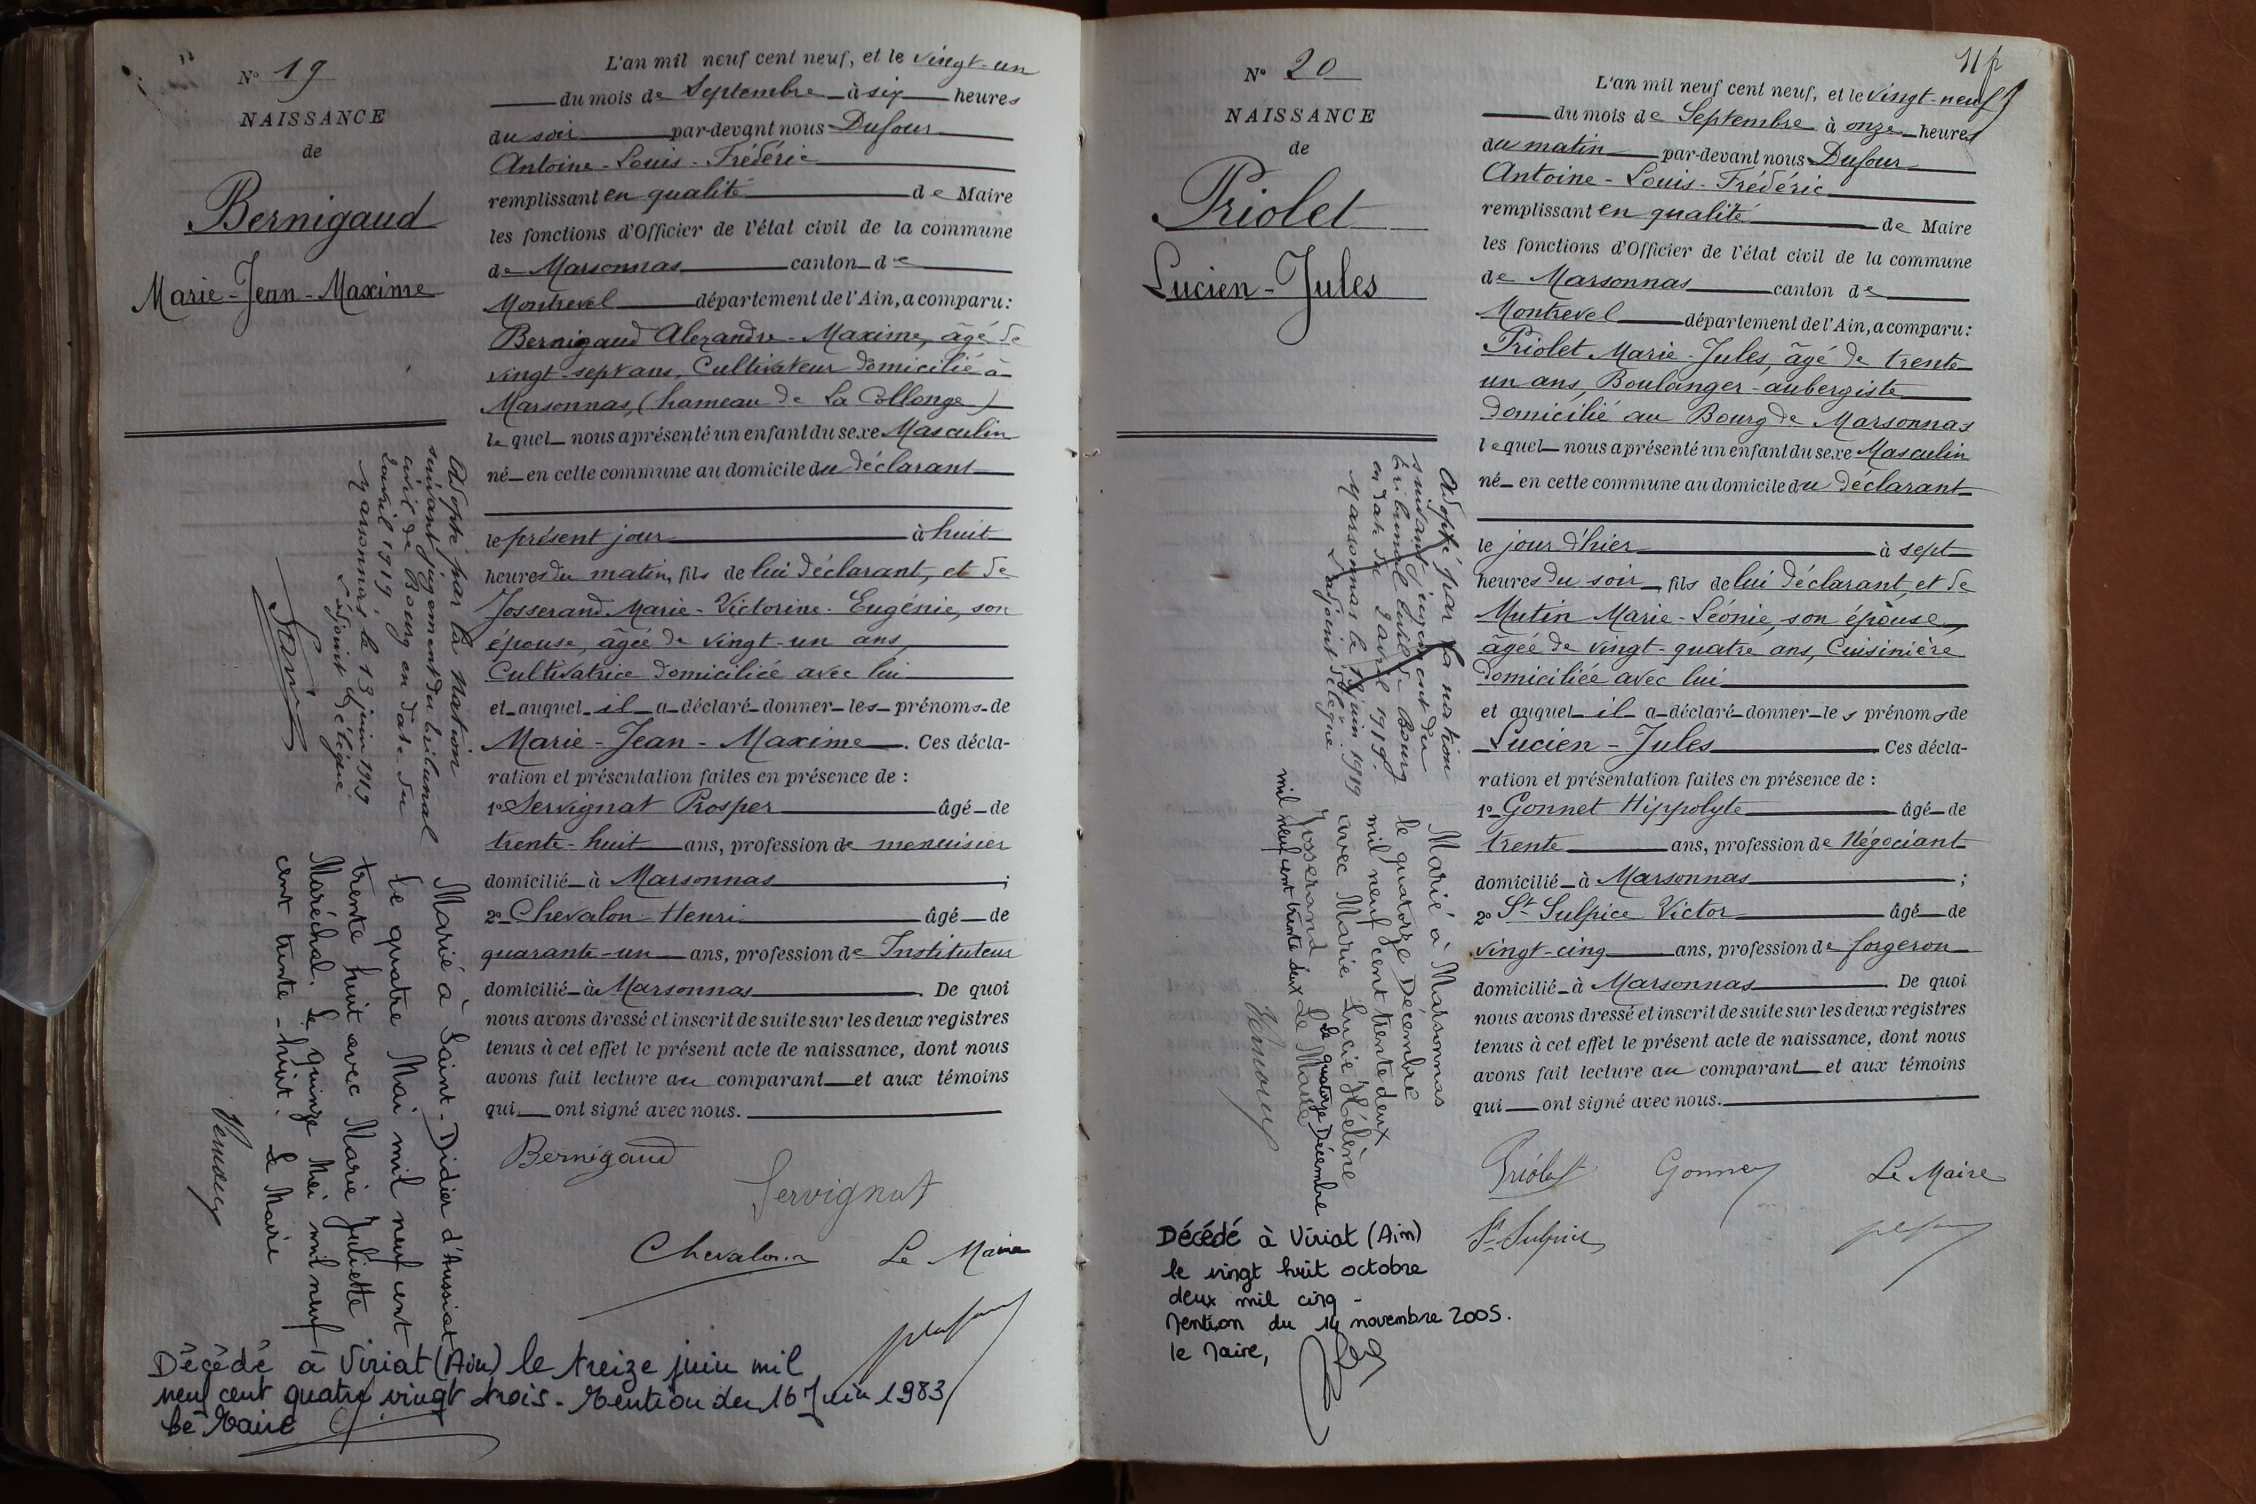 N° 19
NAISSANCE
de
Bernigaud
Marie-Jean-Maxime
L'an mil neuf cent neuf, et le vingt-un
du mois de Septembre à six heures
du soir par-devant nous Dufour
Antoine-Louis-Frédéric
remplissant en qualité de Maire
les fonctions d'Officier de l'état civil de la commune
de Marsonnas canton de
Montrevel département de l'Ain, a comparu:
Bernigaud Alexandre-Maxime, âgé de
vingt-sept ans, Cultivateur domicilié à
Marsonnas, (hameau de La Collonge)
lequel nous a présenté un enfant du sexe Masculin
né en cette commune au domicile du déclarant
le présent jour à huit
heures du matin, fils de lui déclarant, et de
Josserand Marie-Victorine-Eugénie, son
épouse, âgée de vingt-un ans,
Cultivatrice domiciliée avec lui
et auquel il a déclaré donner les prénoms de
Marie-Jean-Maxime. Ces décla-
ration et présentation faites en présence de :
1° Servignat Prosper âgé de
trente-huit ans, profession de menuisier
domicilié à Marsonnas ;
2° Chevalon Henri âgé de
quarante-un ans, profession de Instituteur
domicilié à Marsonnas. De quoi
nous avons dressé et inscrit de suite sur les deux registres
tenus à cet effet le présent acte de naissance, dont nous
avons fait lecture au comparant et aux témoins
qui ont signé avec nous.
Bernigaud
Servignat
Chevalon
Le Maire
Adopté par la Nation
suivant jugement du tribunal
civil de Bourg en date du
2 avril 1919
Marsonnas le 13 juin 1919
L'adjoint délégué
Marié à Saint-Didier d'Aussiat
le quatre Mai mil neuf cent
trente huit avec Marie Juliette
Maréchal. Le quinze Mai mil neuf
cent trente-huit. Le Maire
Décédé à Viriat (Ain) le treize juin mil
neuf cent quatre vingt trois - Mention du 16 Juin 1983
Le Maire
11
N° 20
NAISSANCE
de
Priolet
Lucien-Jules
L'an mil neuf cent neuf, et le vingt-neuf
du mois de Septembre à onze heures
du matin par-devant nous Dufour
Antoine-Louis-Frédéric
remplissant en qualité de Maire
les fonctions d'Officier de l'état civil de la commune
de Marsonnas canton de
Montrevel département de l'Ain, a comparu:
Priolet Marie-Jules, âgé de trente
un ans, Boulanger-aubergiste
domicilié au Bourg de Marsonnas
lequel nous a présenté un enfant du sexe Masculin
né en cette commune au domicile du déclarant
le jour d'hier à sept
heures du soir fils de lui déclarant, et de
Mutin Marie-Léonie, son épouse,
âgée de vingt-quatre ans, Cuisinière
domiciliée avec lui
et auquel il a déclaré donner les prénoms de
Lucien-Jules Ces décla-
ration et présentation faites en présence de :
1° Gonnet Hippolyte âgé de
trente ans, profession de Négociant
domicilié à Marsonnas ;
2° St Sulpice Victor âgé de
vingt-cinq ans, profession de forgeron
domicilié à Marsonnas De quoi
nous avons dressé et inscrit de suite sur les deux registres
tenus à cet effet le présent acte de naissance, dont nous
avons fait lecture au comparant et aux témoins
qui ont signé avec nous.
Priolet
Gonnet
Le Maire
St Sulpice
Adopté par la nation
suivant jugement du
tribunal civil de Bourg
en date du 2 avril 1919
Marsonnas le 13 juin 1919
L'adjoint délégué
Marié à Marsonnas
le quatorze Décembre
mil neuf cent trente deux
avec Marie Lucie Hélène
Josserand Le quatorze Décembre
mil neuf cent trente deux Le Maire
Décédé à Viriat (Ain)
le vingt huit octobre
deux mil cinq -
Mention du 14 novembre 2005.
le Maire,